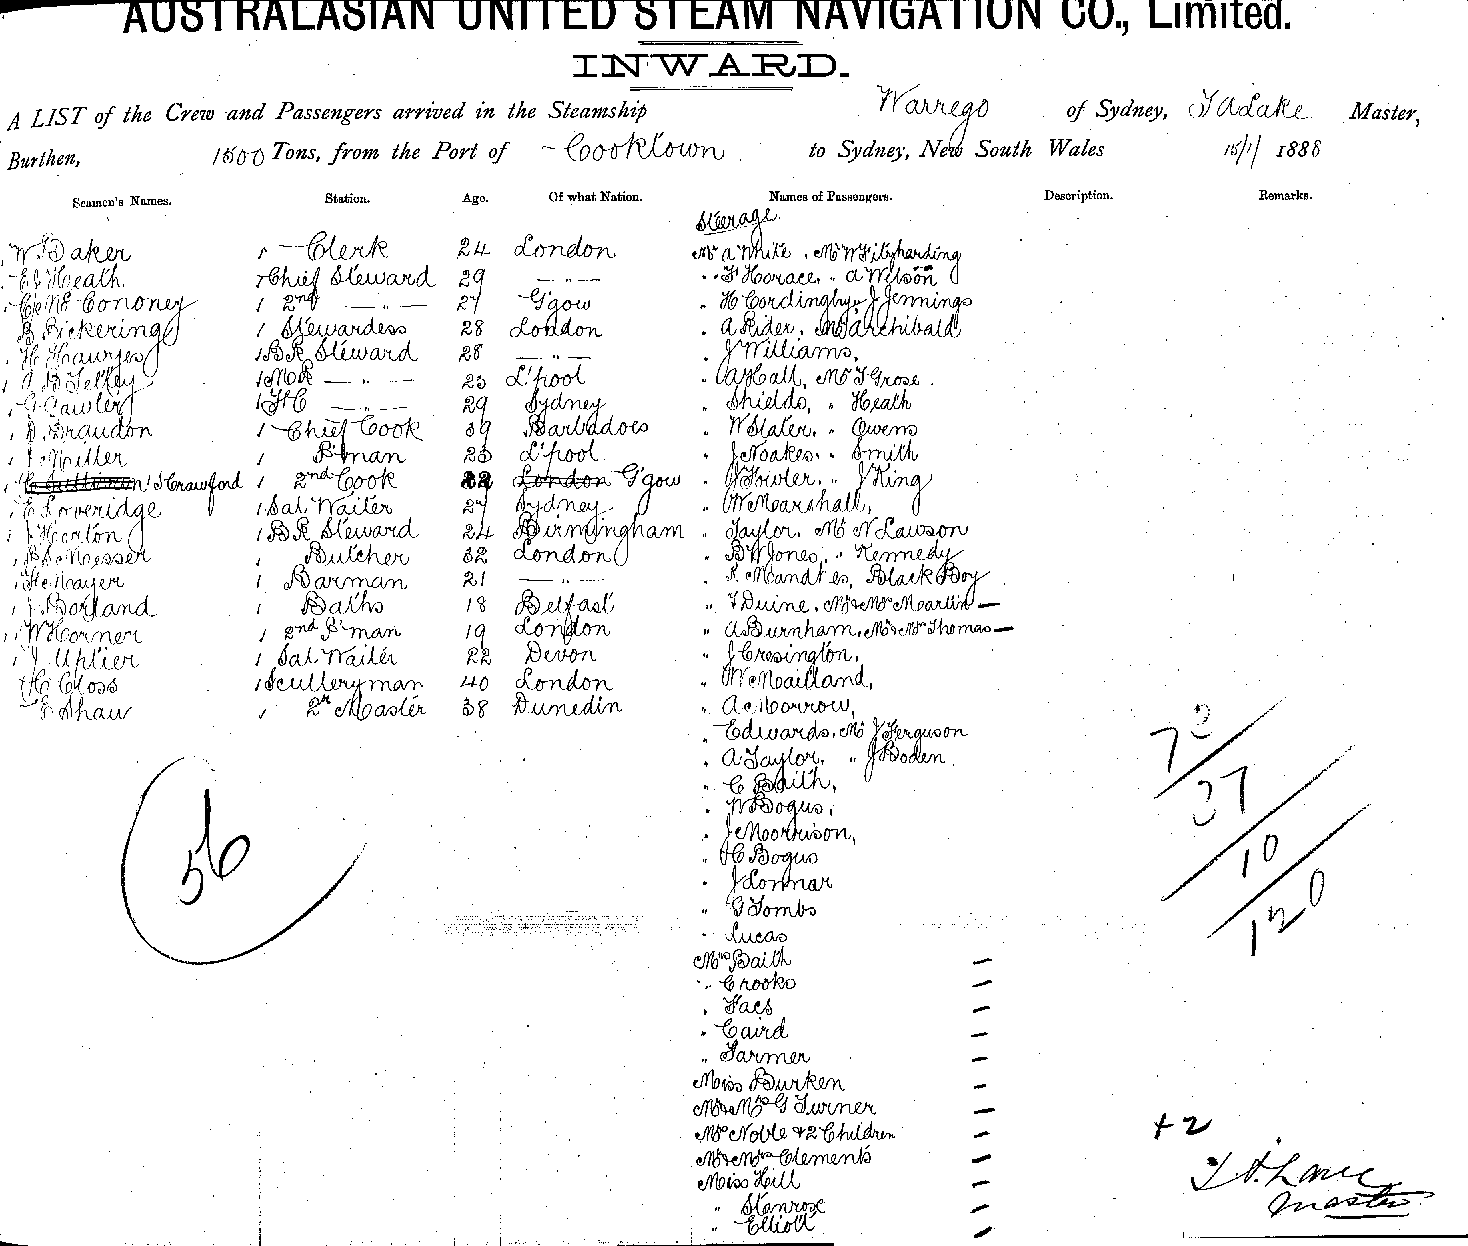 AUSTRALASIAN UNITED STEAM NAVIGATION CO., Limited.
INWARD.
A LIST of the Crew and Passengers arrived in the Steamship Warrego of Sydney, T A Lake Master,
Burthen, 1500 Tons, from the Port of Cooktown to Sydney, New South Wales 15/1/ 1888
Seamen's Names. Station. Age. Of what Nation. Names of Passengers. Description. Remarks.
Steerage.
W Baker 1 Clerk 24 London Mr A White. Mr W Fitzharding
E J Heath 1 Chief Steward 29 — " — " F Horace. " A Wilson
1 2nd — " — 27 G'gow " H Cordingby, J Jennings
B Pickering 1 Stewardess 28 London " A Rider. Archibald
H 1 B R Steward 28 — " — " J Williams,
1 — " — 23 L'pool " A Hall, Mr T Grose.
G Lawler 1 — " — 29 Sydney " Shields, " Heath
Braudon 1 Chief Cook 39 Barbadoes " W Slater. " Owens
J Miller 1 P'man 23 L'pool " J Noakes. " Smith
Crawford 1 2nd Cook 22 London G'gow " J Fowler. " J King
E Loveridge 1 Sal. Waiter 27 Sydney " W Marshall,
J Horton 1 B R Steward 24 Birmingham " Taylor. Mr N Lawson
Messer 1 Butcher 32 London " B W Jones, " Kennedy
Mayer 1 Barman 21 — " — " Black Boy
J Borland 1 Baths 18 Belfast " F Duine. Mr & Mrs Martin —
W Horner 1 2nd P'man 19 London " A Burnham. Mr & Mrs Thomas —
1 Sal. Waiter 22 Devon " J Cresington,
H Closs 1 Sculleryman 40 London " W Mailland,
Shaw 1 2nd Master 38 Dunedin " A Morrow,
" Edwards. Mr J Ferguson
" A Taylor. " J Boden.
" C Baith,
" W Bogus,
" J Morrison,
" H Bogus
" J Connar
" G Tombs
" Lucas
Mrs Baith —
" Crooks —
" Facs —
" Caird —
" Farmer —
Miss Burken —
Mr & Mrs G Turner —
Mrs Noble & 2 Children —
Mr & Mrs Clements —
Miss Hill —
" Stanrose —
" Elliott —
56
73
37
10
120
+ 2
T A Lake
Master